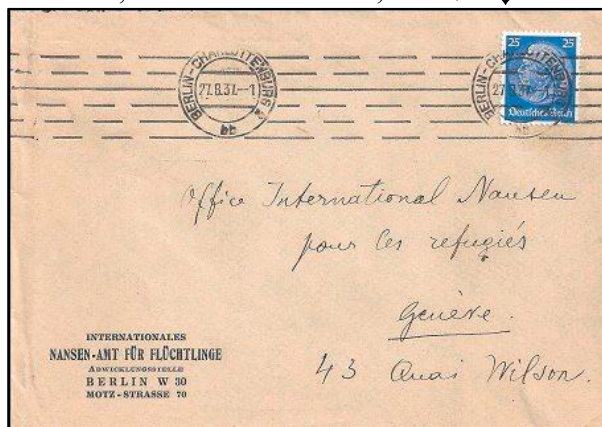 BERLIN-CHARLOTTENBURG 2
27.8.37.-1
bb
BERLIN-CHARLOTTENBURG
bb
25 25
Deutsches Reich
Office International Nansen
pour les refugiés
Genève.
43 Quai Wilson.
INTERNATIONALES
NANSEN-AMT FÜR FLÜCHTLINGE
ABWICKLUNGSSTELLE
BERLIN W 30
MOTZ-STRASSE 70